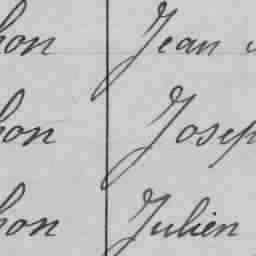 hon Jean
hon Josep
hon Julien